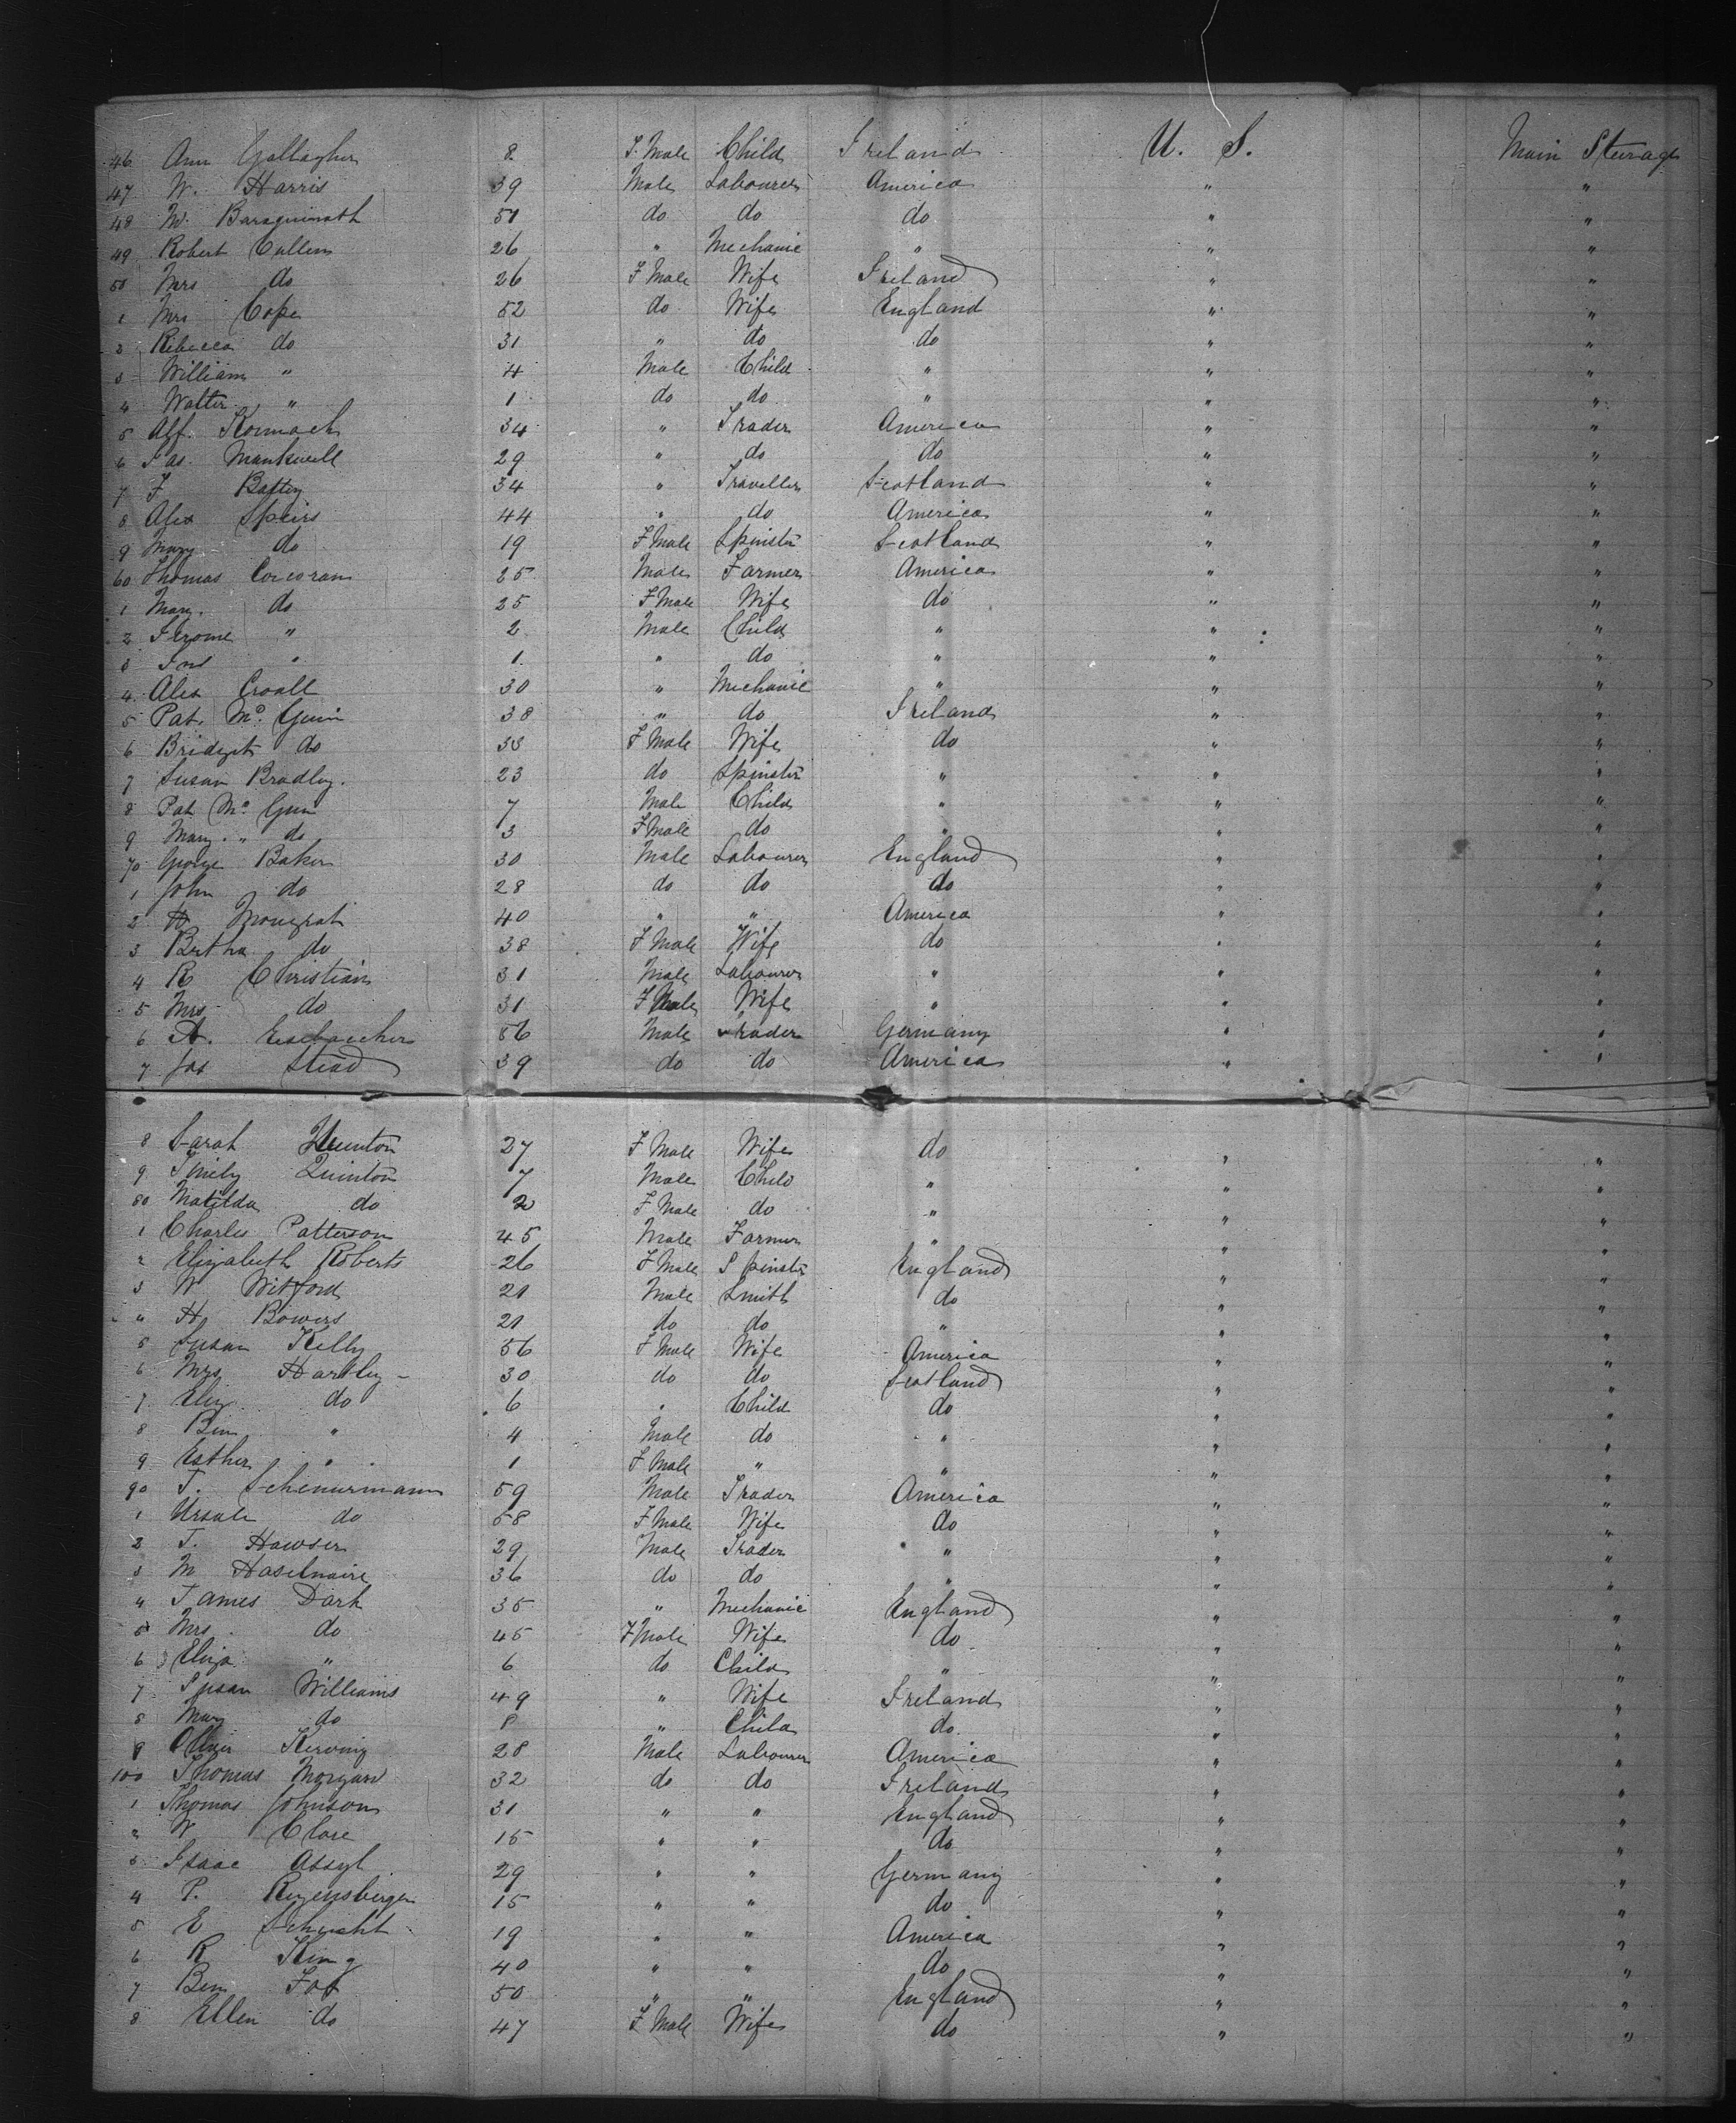 46 Ann Gallagher 8 F. Male Child Ireland U. S. Main Steerage
47 W. Harris 39 Male Labourer America " "
48 W. 51 do do do " "
49 Robert Cullen 26 " Mechanic " " "
50 Mrs do 26 F Male Wife Ireland " "
1 Mrs Cope 52 do Wife England " "
2 Rebecca do 31 " do do " "
3 William " 4 Male Child " " "
4 Walter " 1 do do " " "
5 Alf. Kormack 34 " Trader America " "
6 Jas. Mankwell 29 " do do " "
7 J Battey 34 " Traveller Scotland " "
8 Alex Speirs 44 " do America " "
9 Mary do 19 F Male Spinster Scotland " "
60 Thomas Corcoran 25 Male Farmer America " "
1 Mary. do 25 F Male Wife do " "
2 Jerome " 2 Male Child " " "
3 Jno " 1 " do " " "
4 Alex Croall 30 " Mechanic " " "
5 Pat. Mc. Guin 38 " do Ireland " "
6 Bridget do 33 F Male Wife do " "
7 Susan Bradley. 23 do Spinster " " "
8 Pat Mc. Gun 7 Male Child " " "
9 Mary. " do 3 F Male do " " "
70 George Baker 30 Male Labourer England " "
1 John do 28 do do do " "
2 H 40 " " America " "
3 Bertha do 38 F Male Wife do " "
4 R Christian 31 Male Labourer " " "
5 Mrs do 31 F Male Wife " " "
6 A. Eschaecher 56 Male Trader Germany " "
7 Jas Stead 39 do do America " "
8 Sarah 27 F Male Wife do " "
9 Quinton 7 Male Child " " "
80 Matilda do 2 F Male do " " "
1 Charles Patterson 45 Male Farmer " " "
2 Elizabeth Roberts 26 F Male Spinster England " "
3 W Witford 21 Male Smith do " "
4 H Bowers 21 do do " " "
5 Susan Kelly 56 F Male Wife America " "
6 Mrs Hartley - 30 do do Scotland " "
7 Eliz. do 6 " Child do " "
8 Ben " 4 Male do " " "
9 Esther " 1 F Male " " " "
90 T. Schenurmann 59 Male Trader America " "
1 Ursale do 58 F Male Wife do " "
2 T. Hawser 29 Male Trader " " "
3 M Haselnaire 36 do do " " "
4 James Dark 35 " Mechanic England " "
5 Mrs. do 45 F Male Wife do " "
6 Eliza " 6 do Child " " "
7 Susan Williams 49 " Wife Ireland " "
8 Mary do 8 " Child do. " "
9 Oliver 28 Male Labourer America " "
100 Thomas Morgan 32 do do Ireland " "
1 Thomas Johnson 31 " " England " "
2 W Clare 15 " " do " "
3 Isaac 29 " " Germany " "
4 P. Regensberger 15 " " do " "
5 E Schucht 19 " " America " "
6 R King 40 " " do " "
7 Ben Fox 50 " " England " "
8 Ellen do 47 F Male Wife do " "